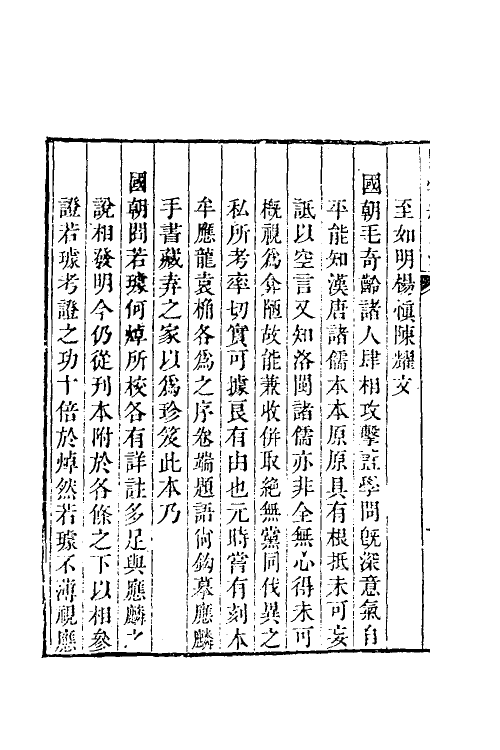 至如明楊愼陳耀文
國朝毛奇齡諸人肆相攻擊蓋學問旣深意氣自
平能知漢唐諸儒本本原原具有根抵未可妄
詆以空言又知洛閩諸儒亦非全無心得未可
槪視爲弇陋故能兼收併取絕無黨同伐異之
私所考率切實可據良有由也元時嘗有刻本
牟應龍袁桷各爲之序卷端題語尙鈎摹應麟
手書藏弆之家以爲珍笈此本乃
國朝閻若璩何焯所校各有詳註多足與應麟之
說相發明今仍從刊本附於各條之下以相參
證若璩考證之功十倍於焯然若璩不薄視應